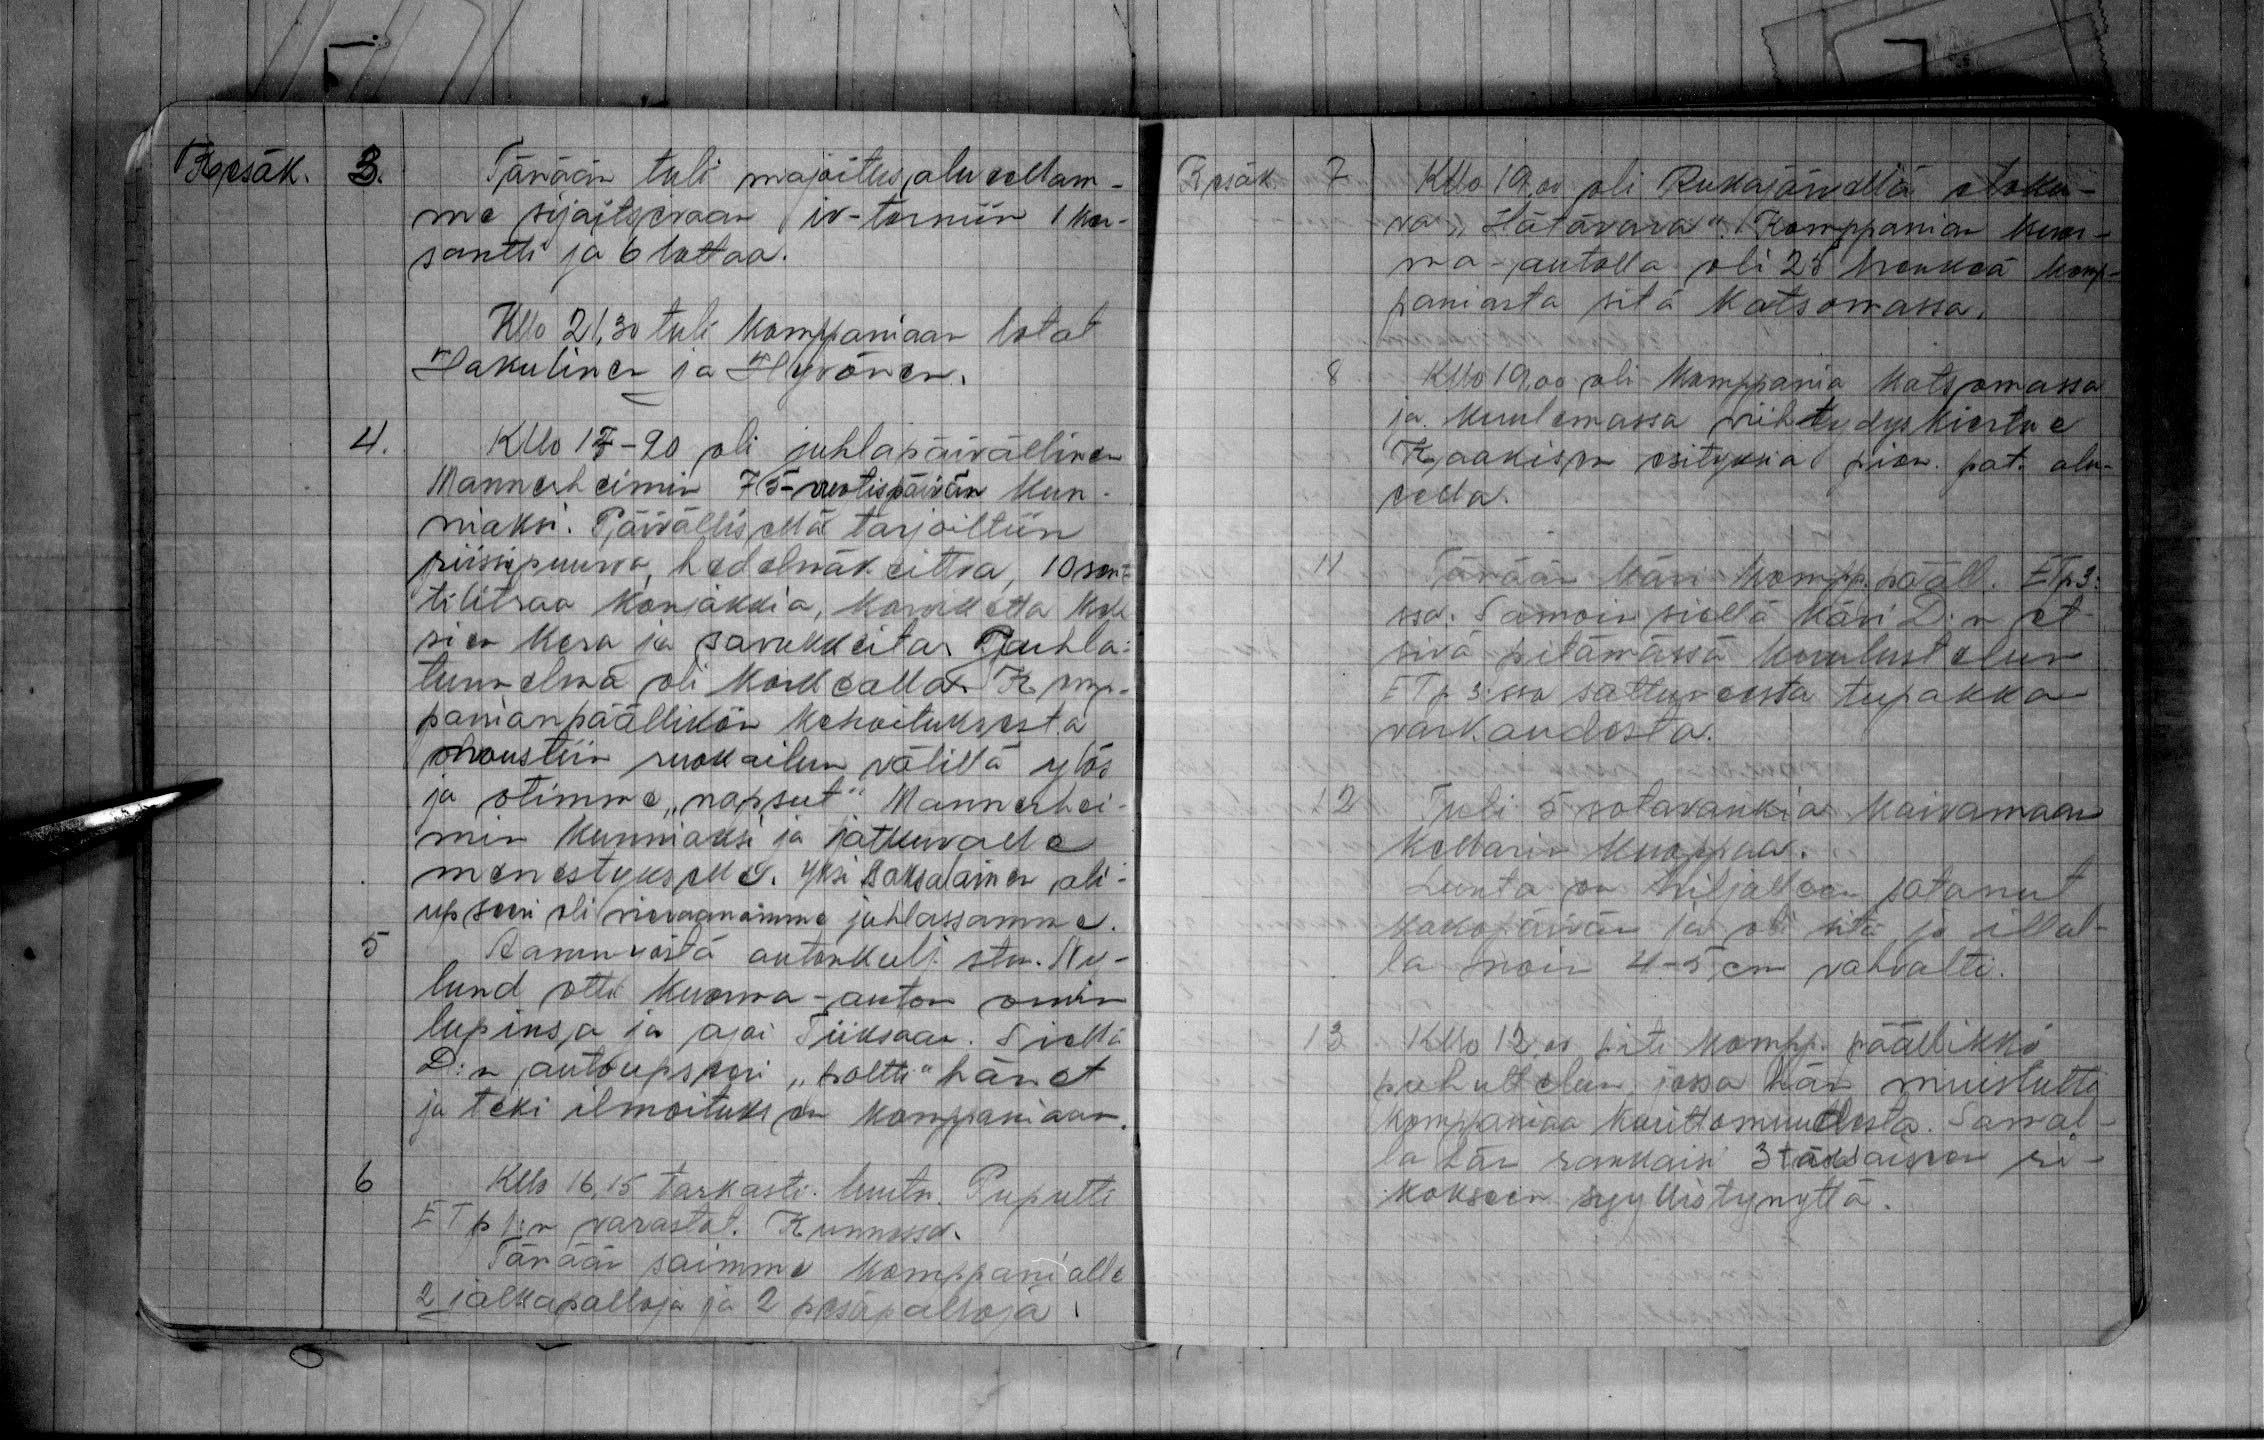 Kesäk. 3. Tänään tuli majoitusalueellam-
me sijaitsevaan iv-torniin 1 ker-
santti ja 6 lottaa.
Kllo 21,30 tuli komppaniaan lotat
Hakulinen ja Hyvönen.
4. Kllo 17-20 oli juhlapäivällinen
Mannerheimin 75-vuotispäivän kun-
niaksi. Päivällisellä tarjoiltiin
riissipuuroa, hedelmäkeittoa, 10 sen-
tilitraa konjakkia, korviketta kek-
sien kera ja savukkeita. Juhla-
tunnelma oli korkealla. Komp-
panianpäällikön kehoituksesta
noustiin ruokailun välillä ylös
ja otimme „napsut" Mannerhei-
min kunniaksi ja jatkuvalle
menestykselle. Yksi saksalainen ali-
upseeri oli vieraanamme juhlassamme.
5 Aamuyöstä autonkulj. stm. Ny-
lund otti kuorma-auton omin
lupinsa ja ajoi Tiiksaan. Siellä
D:n autoupseeri „poltti" hänet
ja teki ilmoituksen komppaniaan.
6 Kllo 16,15 tarkasti luutn. Puputti
ETp 1:n varastot. Kunnossa.
Tänään saimme komppanialle
2 jalkapalloja ja 2 pesäpalloja.
Kesäk. 7 Kllo 19,00 oli Rukajärvellä eloku-
va „Hätävara". Komppanian kuor-
ma-autolla oli 25 henkeä komp-
paniasta sitä katsomassa.
8 Kllo 19,00 oli komppania katsomassa
ja kuulemassa viihtydyskiertue
Kaakison esityksiä pion. pat. alu-
eella.
11 Tänään kävi kompp. pääll. ETp 3:
ssa. Samoin siellä kävi D:n et-
sivä pitämässä kuulustelun
ETp 3:ssa sattuneesta tupakka
varkaudesta.
12 Tuli 5 sotavankia kaivamaan
kellarin kuoppaa.
Lunta on hiljalleen satanut
kokopäivän ja oli sitä jo illal-
la noin 4-5 cm vahvalti.
13 Kllo 12,00 piti kompp. päällikkö
puhuttelun jossa hän muistutti
komppaniaa kurittomuudesta. Samal-
la hän rankaisi 3 ri-
kokseen syyllistynyttä.